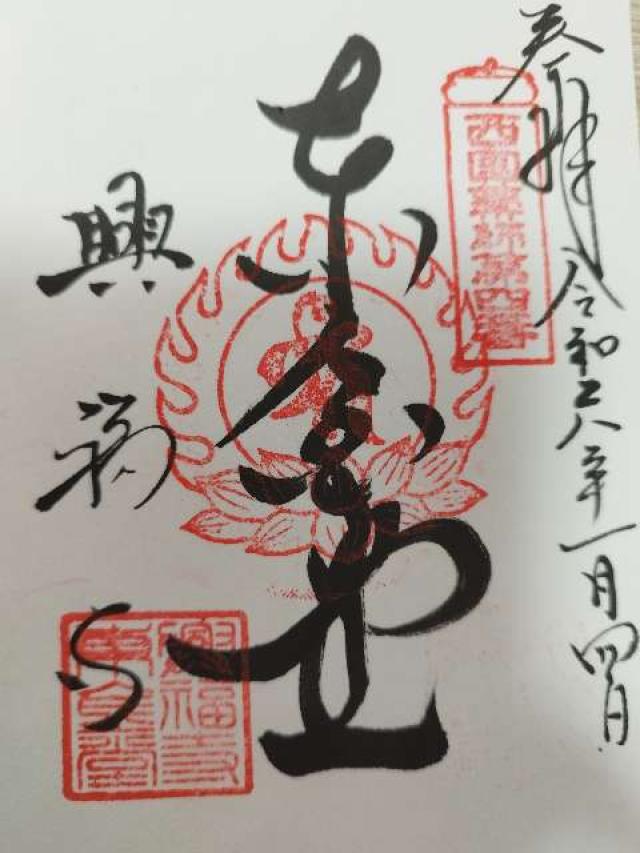 奉拝 令和六年一月四日
西国薬師第四番
東金堂
興福寺
興福寺
東金堂